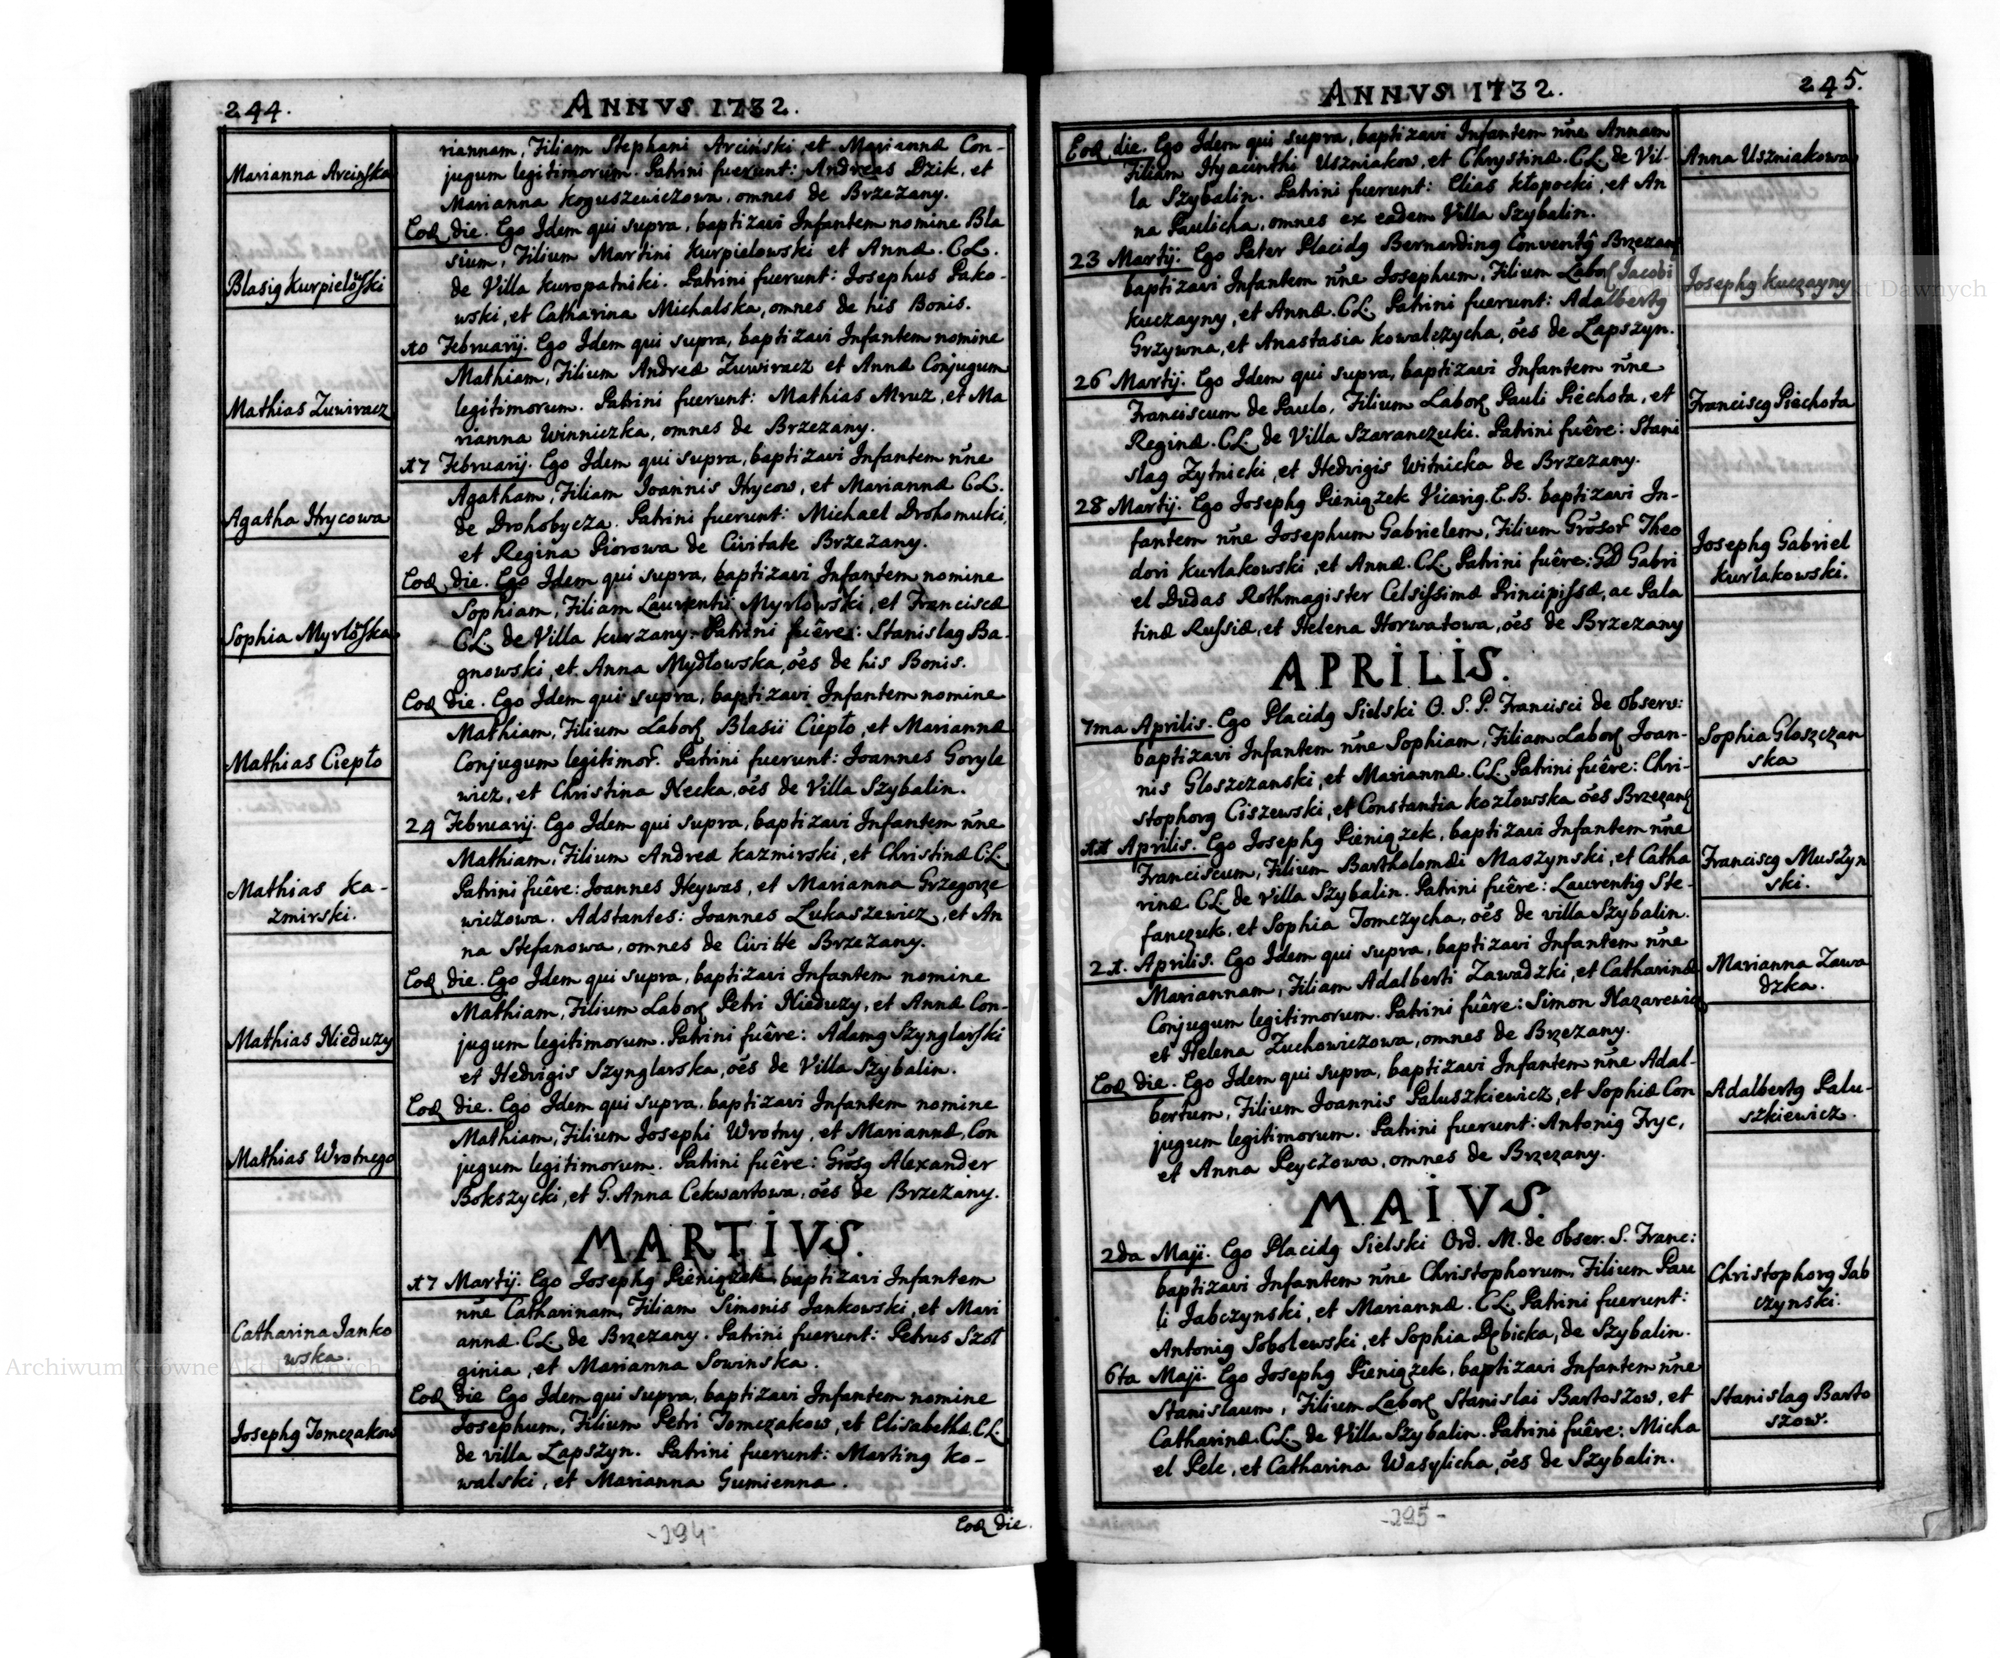 244.
ANNVS 1732.
Marianna Arcińska
riannam, Filiam Stephani Arciński, et Mariannæ Con-
jugum legitimorum. Patrini fuerunt: Andreas Dzik, et
Marianna Koguszewiczowa, omnes de Brzezany.
Blasig Kurpielowski
Eod. die. Ego Idem qui supra, baptizavi Infantem nomine Bla
sium, Filium Martini Kurpielowski et Annæ. C.L.
de Villa Kuropatniki. Patrini fuerunt: Josephus Pako-
wski, et Catharina Michalska, omnes de his Bonis.
Mathias Zuwiracz
10 Februarij. Ego Idem qui supra, baptizavi Infantem nomine
Mathiam, Filium Andreæ Zuwiracz et Annæ Conjugum
legitimorum. Patrini fuerunt: Mathias Mruz, et Ma
rianna Winniczka, omnes de Brzezany.
Agatha Hrycowa
17 Februarij. Ego Idem qui supra, baptizavi Infantem nne
Agatham, Filiam Joannis Hrycow, et Mariannæ C.L.
de Drohobycza. Patrini fuerunt: Michael Drohomuki,
et Regina Piorowa de Civitate Brzezany.
Sophia Myrlowska
Eod. die. Ego Idem qui supra, baptizavi Infantem nomine
Sophiam, Filiam Laurentii Myrlowski, et Franciscæ
C.L. de Villa Kurzany. Patrini fuêre: Stanislag Ba-
gnowski, et Anna Mydłowska, oes de his Bonis.
Mathias Ciepło
Eod. die. Ego Idem qui supra, baptizavi Infantem nomine
Mathiam, Filium Labor. Blasii Ciepło, et Mariannæ
Conjugum legitimor. Patrini fuerunt: Joannes Goryle
wicz, et Christina Necka, oes de Villa Szybalin.
Mathias Ka-
zmirski.
24 Februarij. Ego Idem qui supra, baptizavi Infantem nne
Mathiam, Filium Andreæ Kazmirski, et Christinæ C.L.
Patrini fuêre: Joannes Heywas, et Marianna Grzegorze
wiczowa. Adstantes: Joannes Lukaszewicz, et An
na Stefanowa, omnes de Civitte Brzezany.
Mathias Nieduzy
Eod. die. Ego Idem qui supra, baptizavi Infantem nomine
Mathiam, Filium Labor. Petri Nieduzy, et Annæ Con-
jugum legitimorum. Patrini fuêre: Adamg Szynglarski
et Hedvigis Szynglarska, oes de Villa Szybalin.
Mathias Wrotnego
Eod. die. Ego Idem qui supra, baptizavi Infantem nomine
Mathiam, Filium Josephi Wrotny, et Mariannæ, Con
jugum legitimorum. Patrini fuêre: Grosg Alexander
Bokszycki, et G. Anna Cekwartowa, oes de Brzezany.
MARTIVS.
Catharina Janko
wska.
17 Martij. Ego Josephg Pieniązek, baptizavi Infantem
nne Catharinam, Filiam Simonis Jankowski, et Mari
annæ. C.L. de Brzezany. Patrini fuerunt: Petrus Szoł
ginia, et Marianna Sowinska.
Josephg Tomczakow
Eod. die Ego Idem qui supra, baptizavi Infantem nomine
Josephum, Filium Petri Tomczakow, et Elisabethæ C.L.
de villa Lapszyn. Patrini fuerunt: Marting Ko-
walski, et Marianna Gumienna.
Eod. die.
-294-
ANNVS 1732.
245.
Eod. die. Ego Idem qui supra, baptizavi Infantem nne Annam
Filiam Hyacinthi Uszniakow, et Chrystinæ. C.L. de Vil-
la Szybalin. Patrini fuerunt: Elias Kłopocki, et An
na Paulicha, omnes ex eadem Villa Szybalin.
Anna Uszniakowa
23 Martij. Ego Pater Placidg Bernarding Conventg Brzezan
baptizavi Infantem nne Josephum, Filium Labor. Jacobi
Kuczayny, et Annæ. C.L. Patrini fuerunt: Adalbertg
Grzywna, et Anastasia Kowalczycha, oes de Lapszyn.
Josephg Kuczayny
26 Martij. Ego Idem qui supra, baptizavi Infantem nne
Franciscum de Paulo, Filium Labor. Pauli Piechota, et
Reginæ. C.L. de Villa Szaranczuki. Patrini fuêre: Stani
slag Zytnicki, et Hedvigis Witnicka de Brzezany.
Franciscg Piechota
28 Martij. Ego Josephg Pieniązek Vicarig. E.B. baptizavi In-
fantem nne Josephum Gabrielem, Filium Grosor. Theo
dori Kurlakowski, et Annæ. C.L. Patrini fuêre: GD Gabri
el Dudas Rothmagister Celsissimæ Principissæ, ac Pala
tinæ Russiæ, et Helena Horwatowa, oes de Brzezany
Josephg Gabriel
Kurlakowski.
APRILIS.
7ma Aprilis. Ego Placidg Sielski O. S. P. Francisci de Observ:
baptizavi Infantem nne Sophiam, Filiam Labor. Joan-
nis Gloszczanski, et Mariannæ. C.L. Patrini fuêre: Chri-
stophorg Ciszewski, et Constantia Kozłowska oes Brzezan
Sophia Gloszczan
ska
11 Aprilis. Ego Josephg Pieniązek, baptizavi Infantem nne
Franciscum, Filium Bartholomæi Maszynski, et Catha
rinæ C.L. de Villa Szybalin. Patrini fuêre: Laurentig Ste-
fanczuk, et Sophia Tomczycha, oes de villa Szybalin.
Franciscg Muszyn
ski.
21. Aprilis. Ego Idem qui supra, baptizavi Infantem nne
Mariannam, Filiam Adalberti Zawadzki, et Catharinæ
Conjugum legitimorum. Patrini fuêre: Simon Nazarewicz
et Helena Zuchowiczowa, omnes de Brzezany.
Marianna Zawa
dzka.
Eod. die. Ego Idem qui supra, baptizavi Infantem nne Adal-
bertum, Filium Joannis Paluszkiewicz, et Sophiæ Con
jugum legitimorum. Patrini fuerunt: Antonig Fryc,
et Anna Peyczowa, omnes de Brzezany.
Adalbertg Palu-
szkiewicz.
MAIVS.
2da Maji. Ego Placidg Sielski Ord. M. de Obser. S. Franc:
baptizavi Infantem nne Christophorum, Filium Pau
li Jabczynski, et Mariannæ. C.L. Patrini fuerunt:
Antonig Sobolewski, et Sophia Dębicka, de Szybalin.
Christophorg Jab
czynski.
6ta Maji. Ego Josephg Pieniązek, baptizavi Infantem nne
Stanislaum, Filium Labor. Stanislai Bartoszow, et
Catharinæ. C.L. de Villa Szybalin. Patrini fuêre: Micha
el Pele, et Catharina Wasylicha, oes de Szybalin.
Stanislag Barto
szow.
-295-
Archiwum Główne Akt Dawnych
Archiwum Główne Akt Dawnych